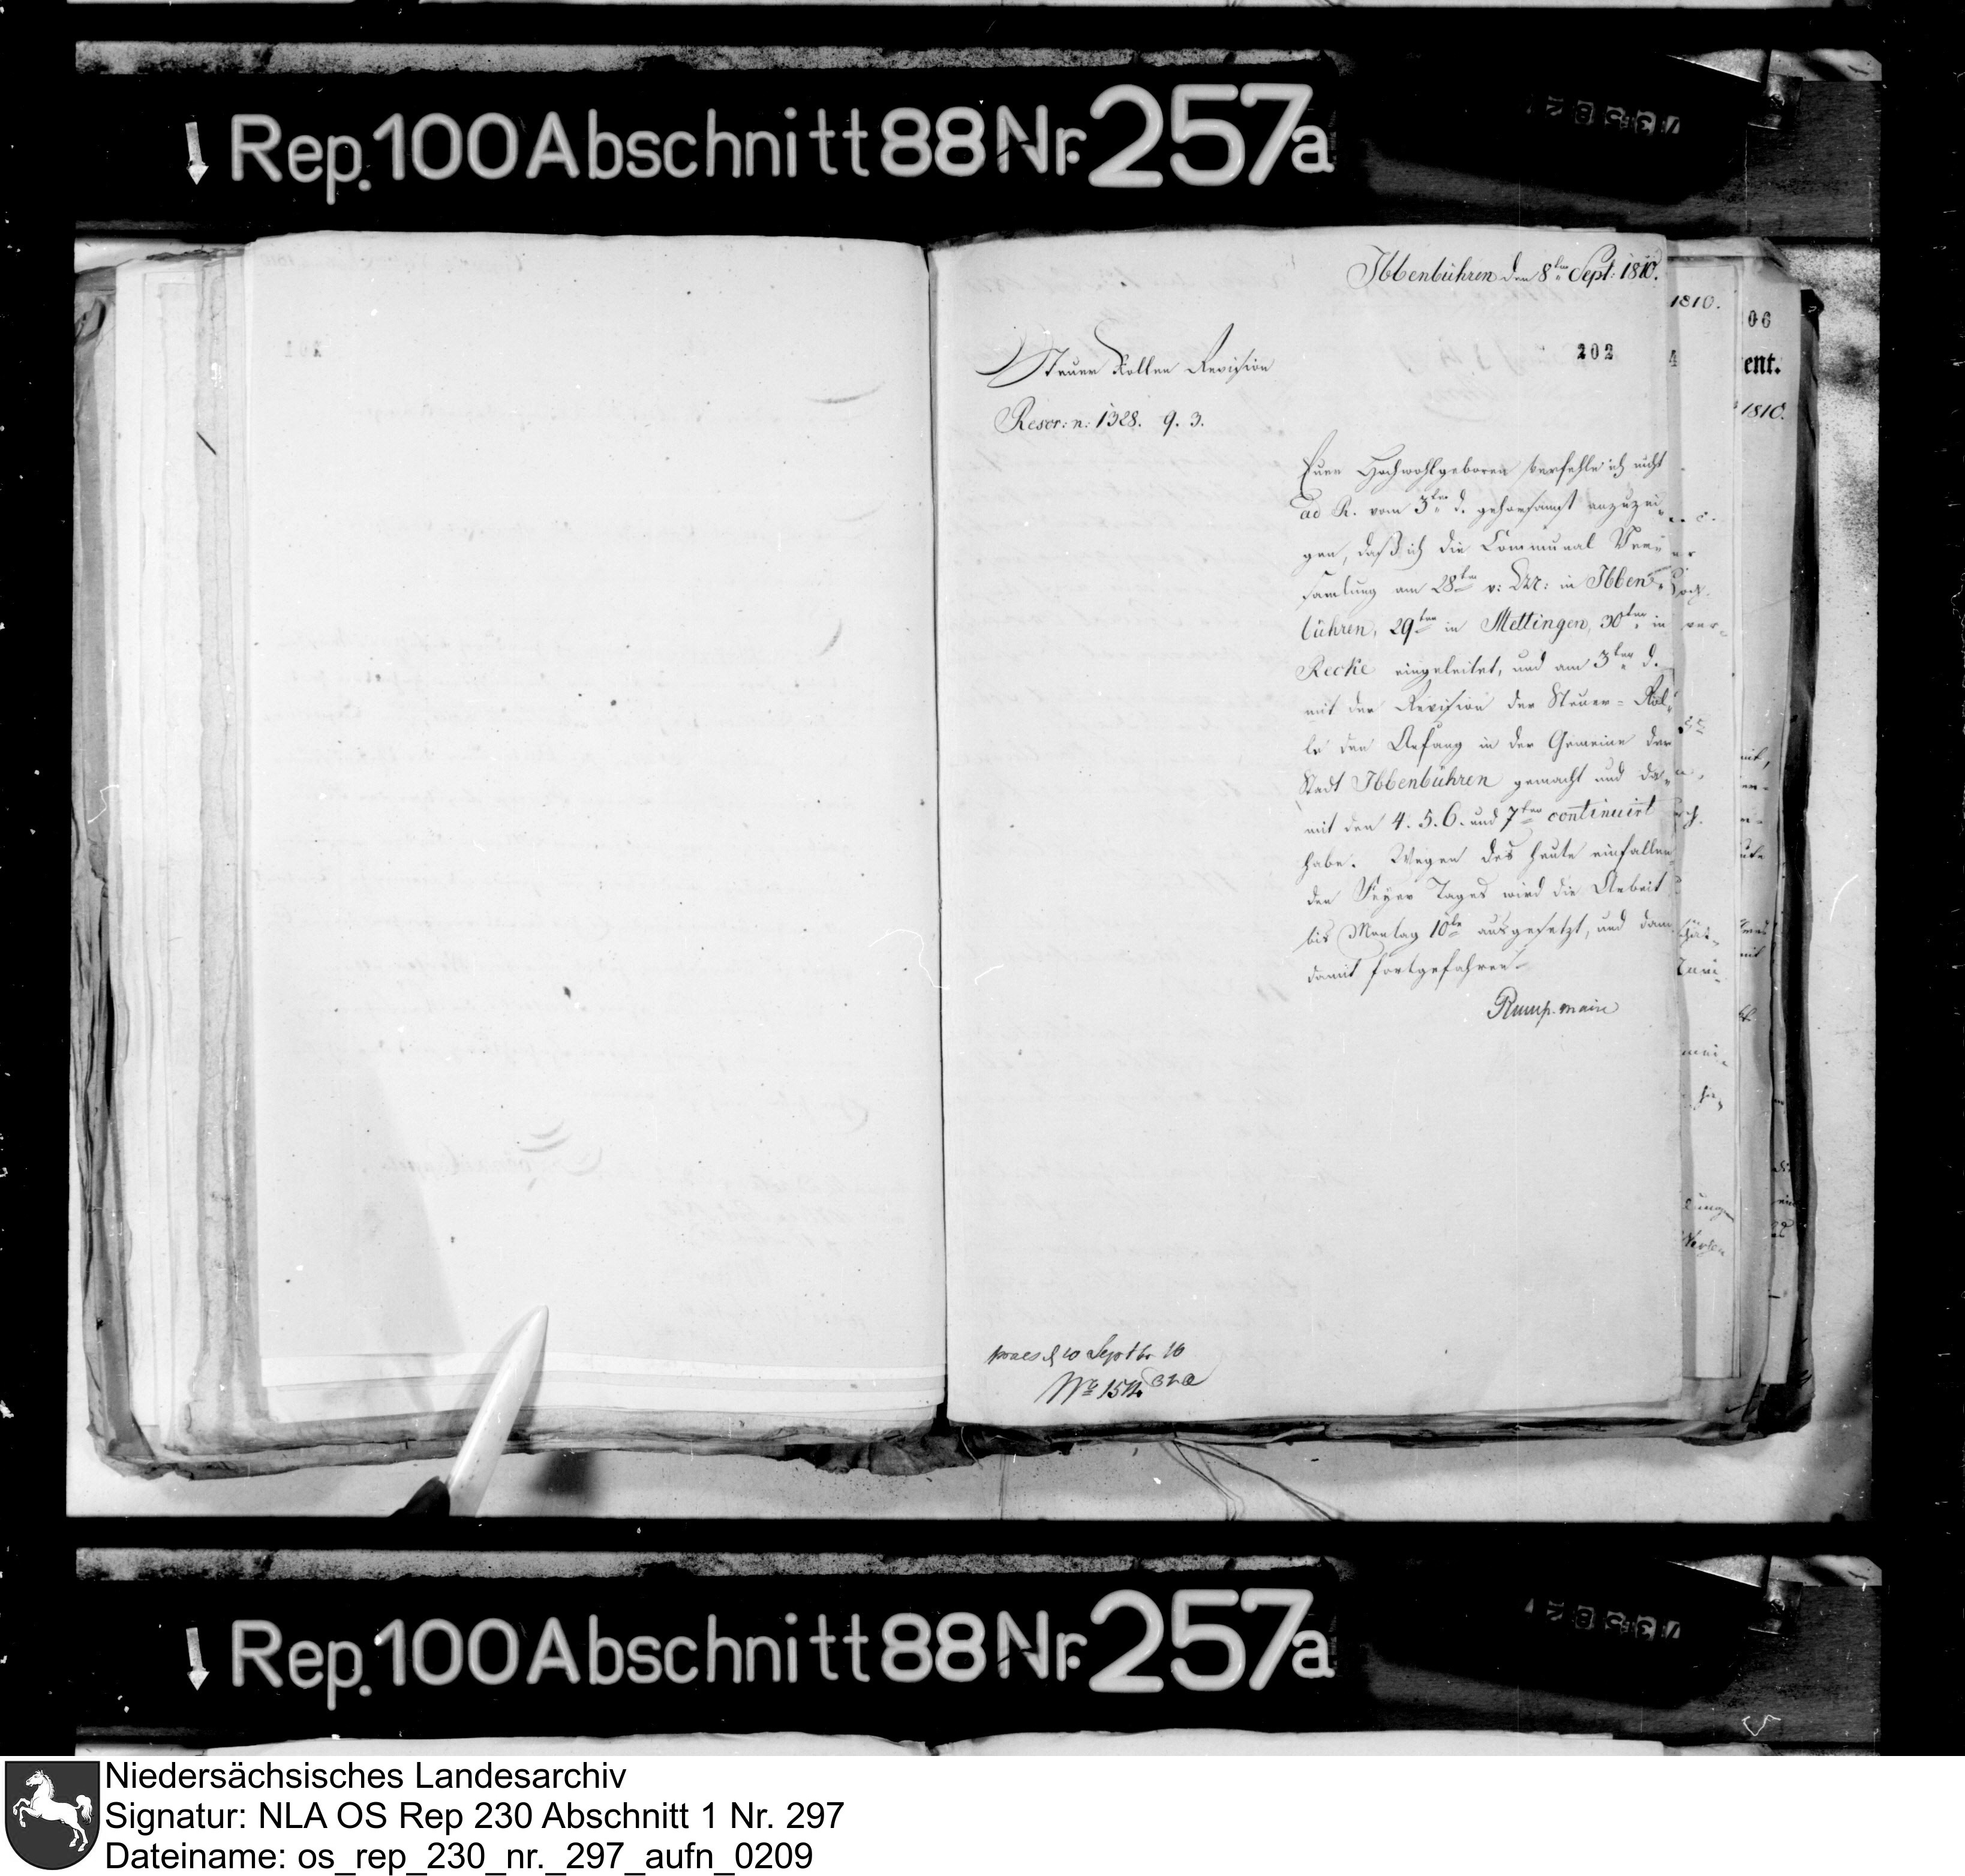 Rep. 100 Abschnitt 88 Nr. 257a
Ibbenbühren den 8ten Sept: 1810.
1810.
06
202
ent.
1810.
Steuer Rollen Revision
Rescr: n: 1328. 9. 3.
Euer Hochwohlgeboren verfehle ich nicht
ad R. vom 3ten d. gehorsamst anzuzei-
gen, daß ich die Communal Ver-
samlung am 28ten v: in Ibben-
bühren, 29ten in Mettingen, 30ten in
Recke eingeleitet, und am 3ten d.
mit der Revision der Steuer-Rol-
le den Anfang in der Gemeine der
Stadt Ibbenbühren gemacht und da-
mit den 4. 5. 6. und 7ten continuirt
habe. Wegen des heute einfallen-
den Feyer Tages wird die Arbeit
bis Montag 10te ausgesetzt, und dann
damit fortgefahren.
Rump. maire
praes d 10 Septbr 10
No 1514
Rep. 100 Abschnitt 88 Nr. 257a
Niedersächsisches Landesarchiv
Signatur: NLA OS Rep 230 Abschnitt 1 Nr. 297
Dateiname: os_rep_230_nr._297_aufn_0209